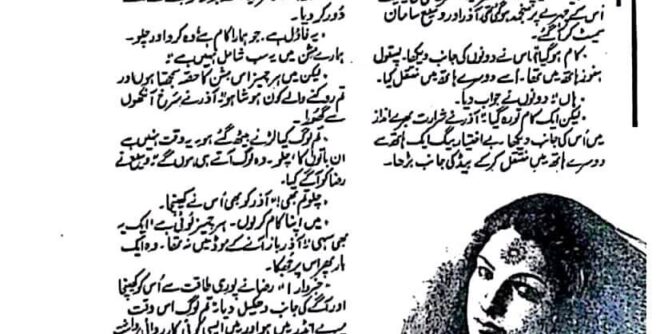 اس کے چہرے پر منجمد ہو گئی تھی۔ آذر اور وسیع سامان
سمیٹ کر آگئے۔
"کام ہو گیا؟" اس نے دونوں کی جانب دیکھا۔ پستول
ہنوز ہاتھ میں تھا۔ اسے دوسرے ہاتھ میں منتقل کیا۔
"ہاں!" دونوں نے جواب دیا۔
"لیکن ایک کام تو رہ گیا!" آذر نے شرارت بھرے انداز
میں اس کی جانب دیکھا۔ بے اختیار بیگ ایک ہاتھ سے
دوسرے ہاتھ میں منتقل کر کے بیڈ کی جانب بڑھا۔
دور کر دیا۔
"یہ فاؤل ہے۔ جو ہمارا کام ہے وہ کرو اور چلو۔
ہمارے مشن میں یہ سب شامل نہیں ہے!"
"لیکن میں ہر چیز اس مشن کا حصہ سمجھتا ہوں اور
تم روکنے والے کون ہو شاہو!" آذر نے سرخ آنکھوں
سے گھورا۔
"تم لوگ کیا لڑنے بیٹھ گئے ہو۔ یہ وقت نہیں ہے
ان باتوں کا۔ چلو۔ وہ لوگ آتے ہی ہوں گے!" وسیع نے
رضا کو آگے کیا۔
"چلو تم بھی!" آذر کو بھی اس نے کھینچا۔
"میں اپنا کام کر لوں۔ ہر چیز لوٹی ہے" ایک یہ
بھی سہی!" آذر باز آنے کے موڈ میں نہ تھا۔ وہ ایک
بار پھر اس پر جھکا۔
"خبردار!" رضا نے پوری طاقت سے اس کو کھینچا
اور آگے کی جانب دھکیل دیا۔ "تم لوگ اس وقت
میرے انڈر میں ہو اور میں ایسی کوئی کارروائی برداشت